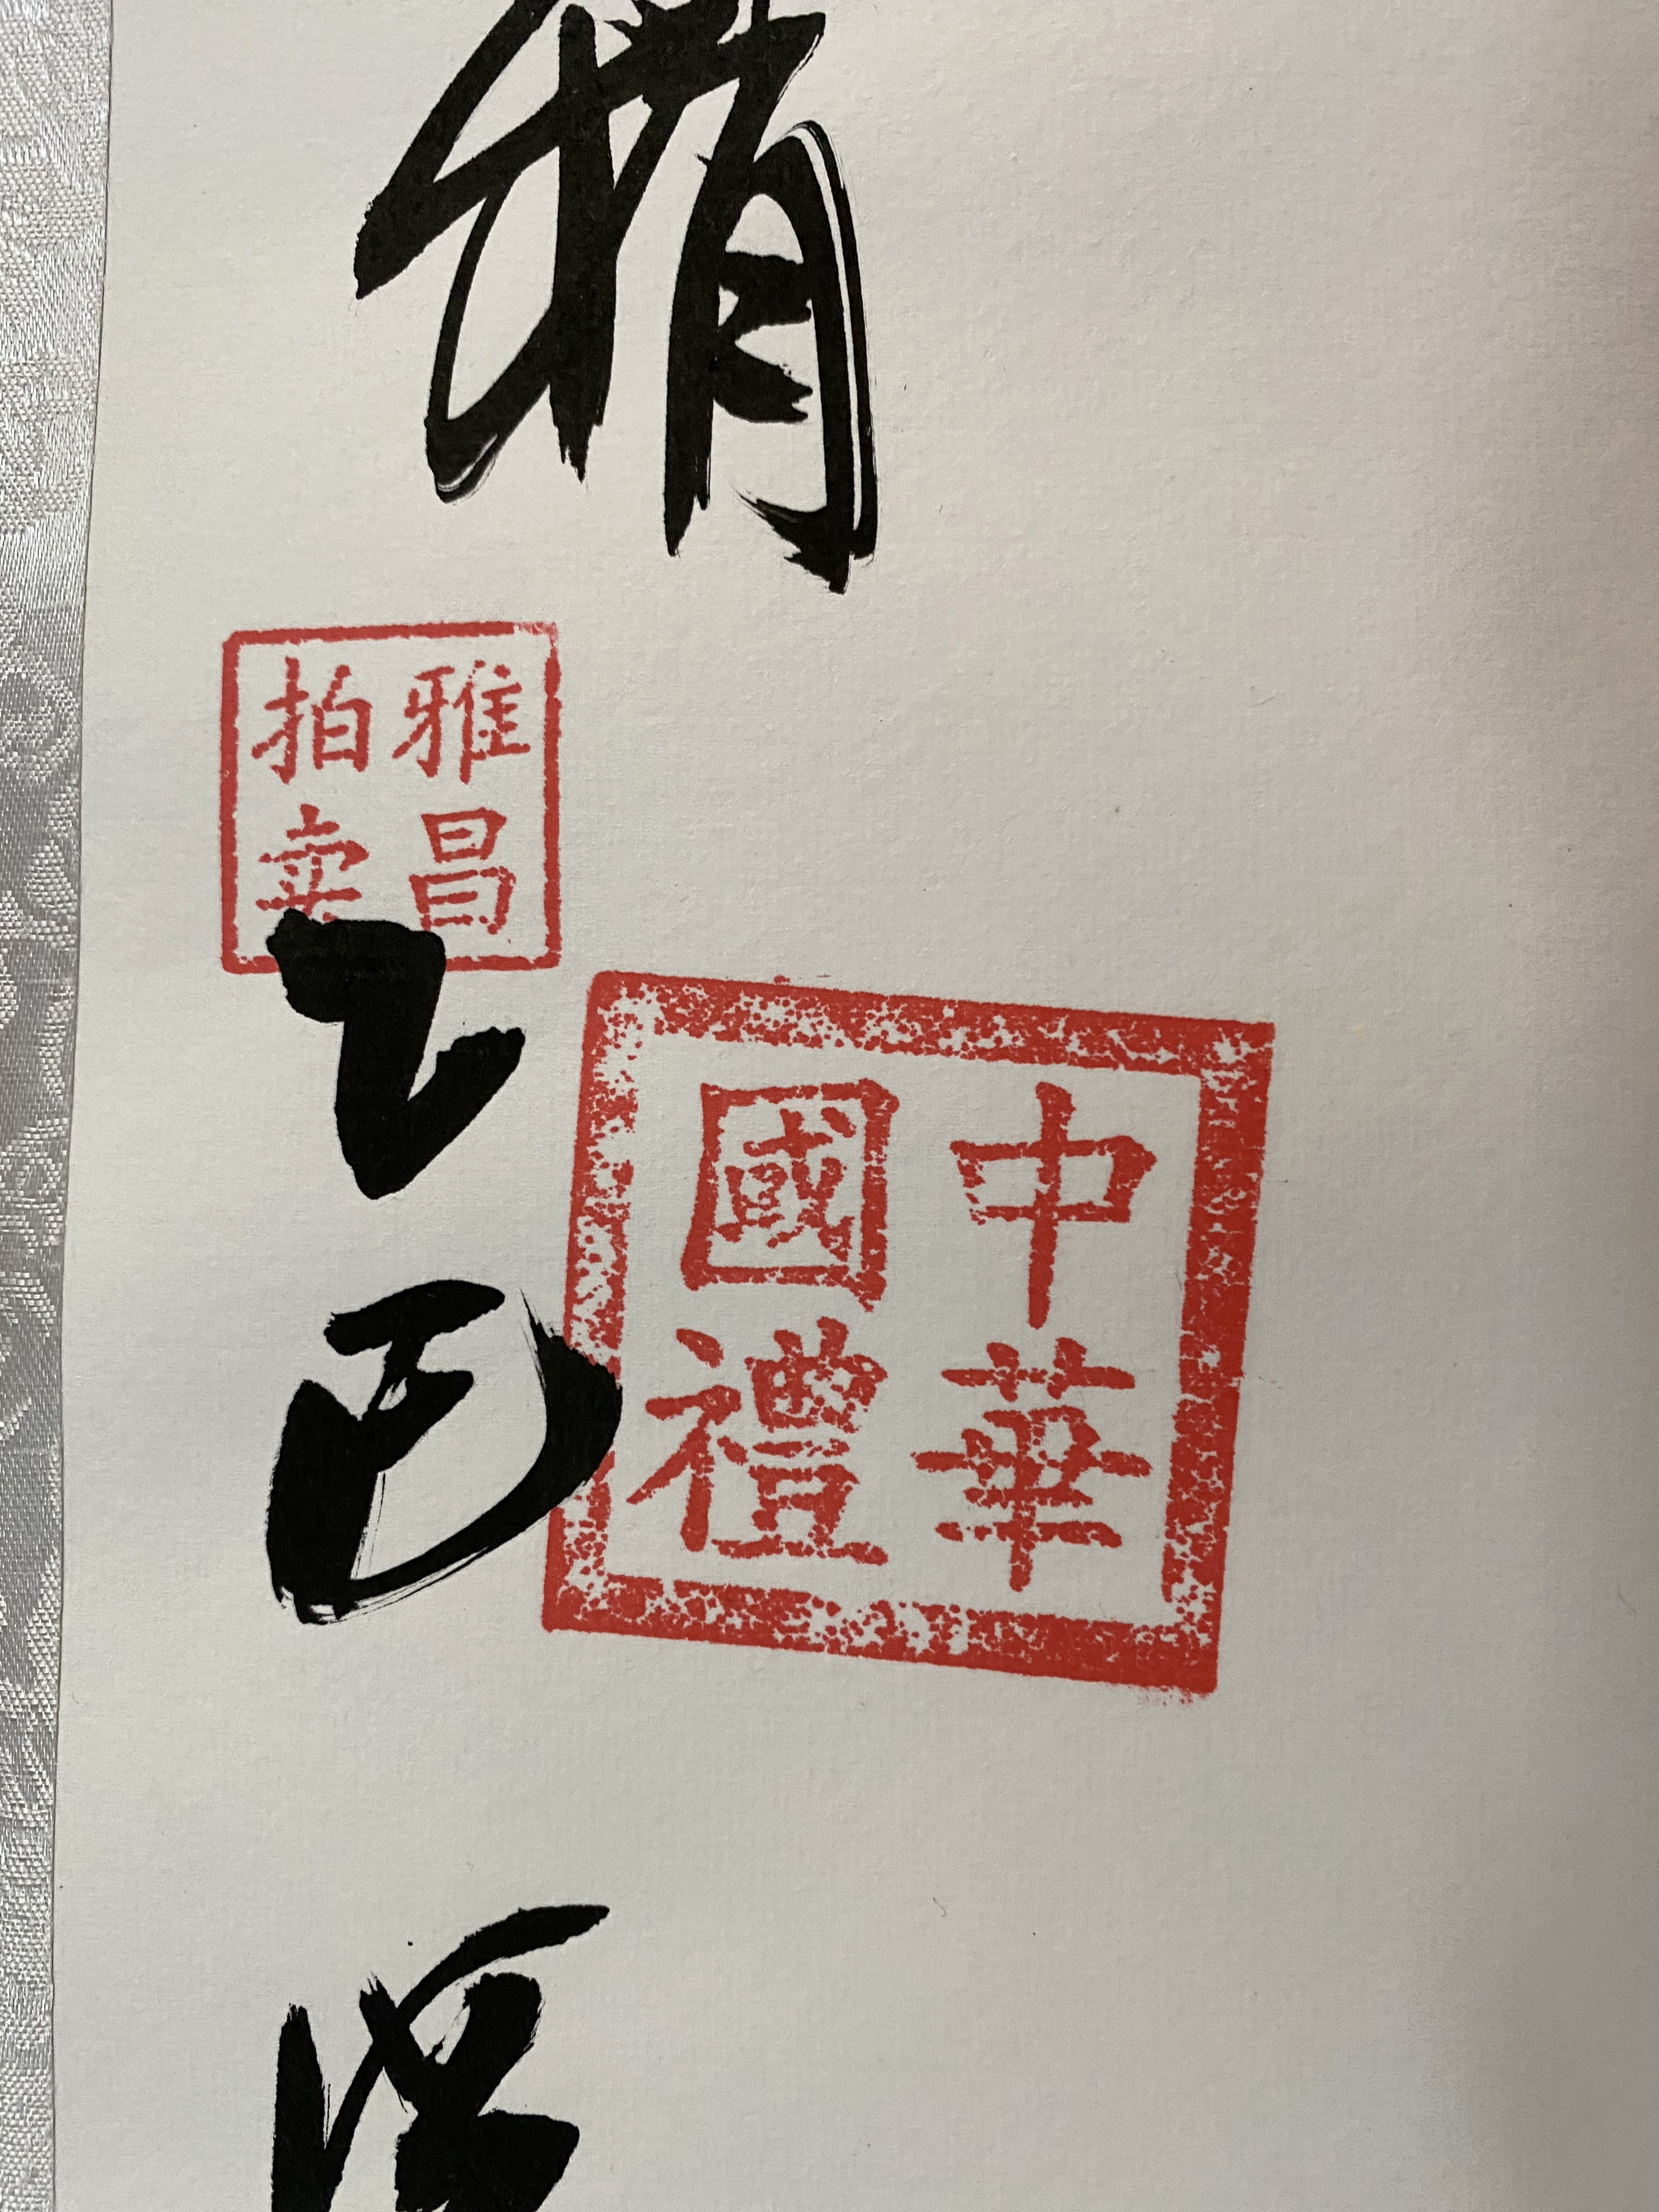 雅昌
拍卖
乙巳
中華
國禮